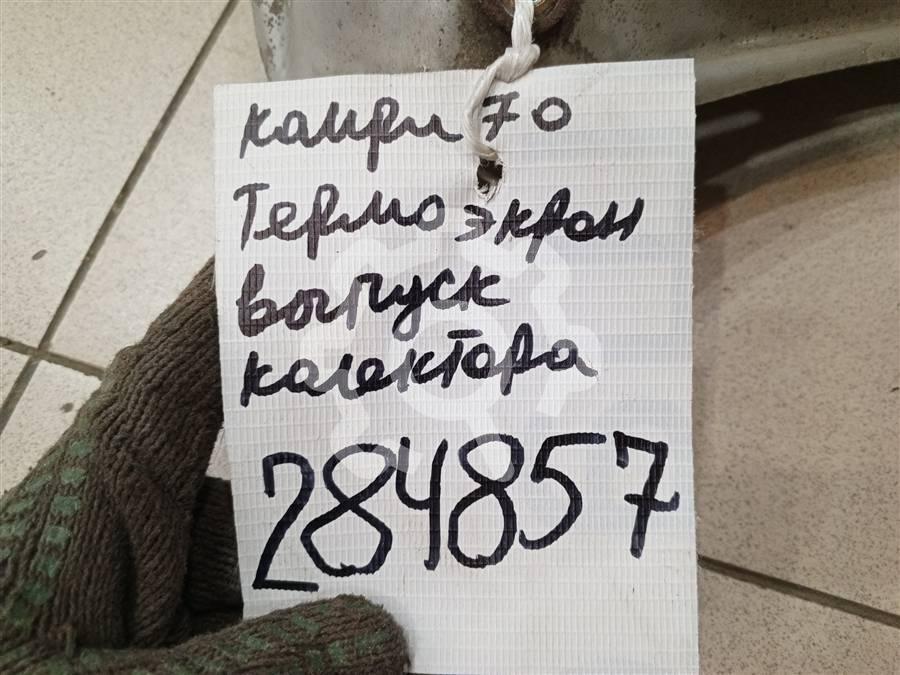 камри 70
Термоэкран
выпуск
калектора
284857